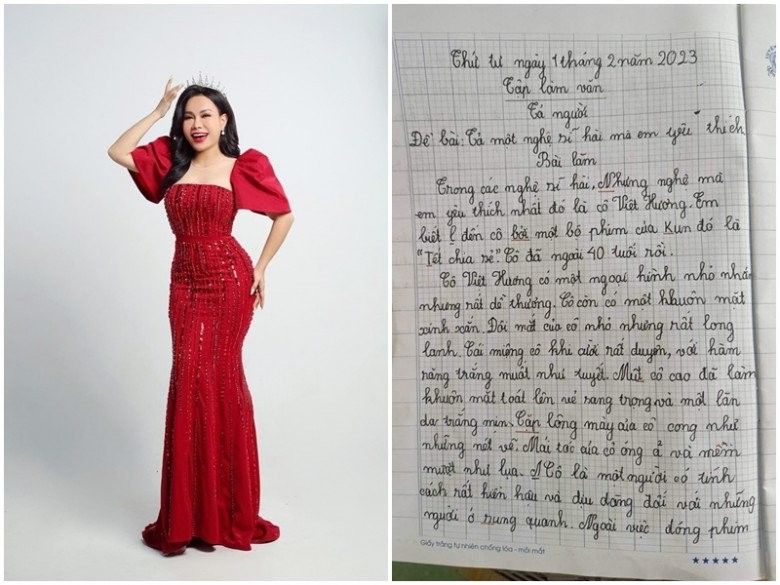 Thứ tư ngày 1 tháng 2 năm 2023
Tập làm văn
Tả người
Đề bài: Tả một nghệ sĩ hài mà em yêu thích
Bài làm
Trong các nghệ sĩ hài, Nhưng nghệ mà
em yêu thích nhất đó là cô Việt Hương. Em
biết đến cô bởi một bộ phim của Kun đó là
"Tết chia rẽ". Cô đã ngoài 40 tuổi rồi.
Cô Việt Hương có một ngoại hình nhỏ nhắn
nhưng rất dễ thương. Cô còn có một khuôn mặt
xinh xắn. Đôi mắt của cô nhỏ nhưng rất long
lanh. Cái miệng cô khi cười rất duyên, với hàm
răng trắng muốt như tuyết. Mũi cô cao đã làm
khuôn mặt toát lên vẻ sang trọng và một làn
da trắng mịn. Cặp lông mày của cô cong như
những nét vẽ. Mái tóc của cô óng ả và mềm
mượt như lụa. Cô là một người có tính
cách rất hiền hậu và dịu dàng đối với những
người ở sung quanh. Ngoài việc đóng phim
Giấy trắng tự nhiên chống lóa - mỏi mắt